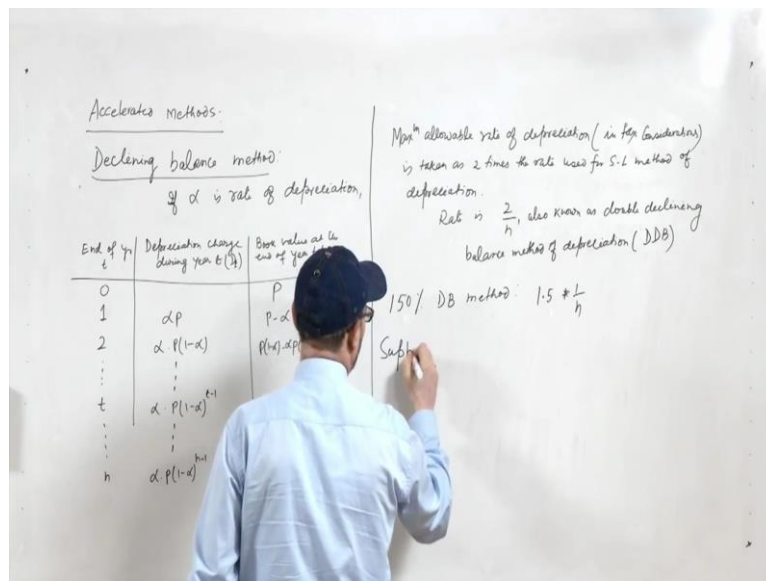 Accelerated methods.
Declining balance method:
If α is rate of depreciation,
End of yr Depreciation charge Book value at the
t during year t (Dt) end of year
0 P
1 αP P-α
2 α.P(1-α) P(1-α)-αP(
t α.P(1-α)^t-1
n α.P(1-α)^n-1
Max^m allowable rate of depreciation (in
is taken as 2 times the rate used for S-L method of
depreciation.
Rate is 2/n, also known as double declining
balance method of depreciation (DDB)
150% DB method: 1.5 * 1/n